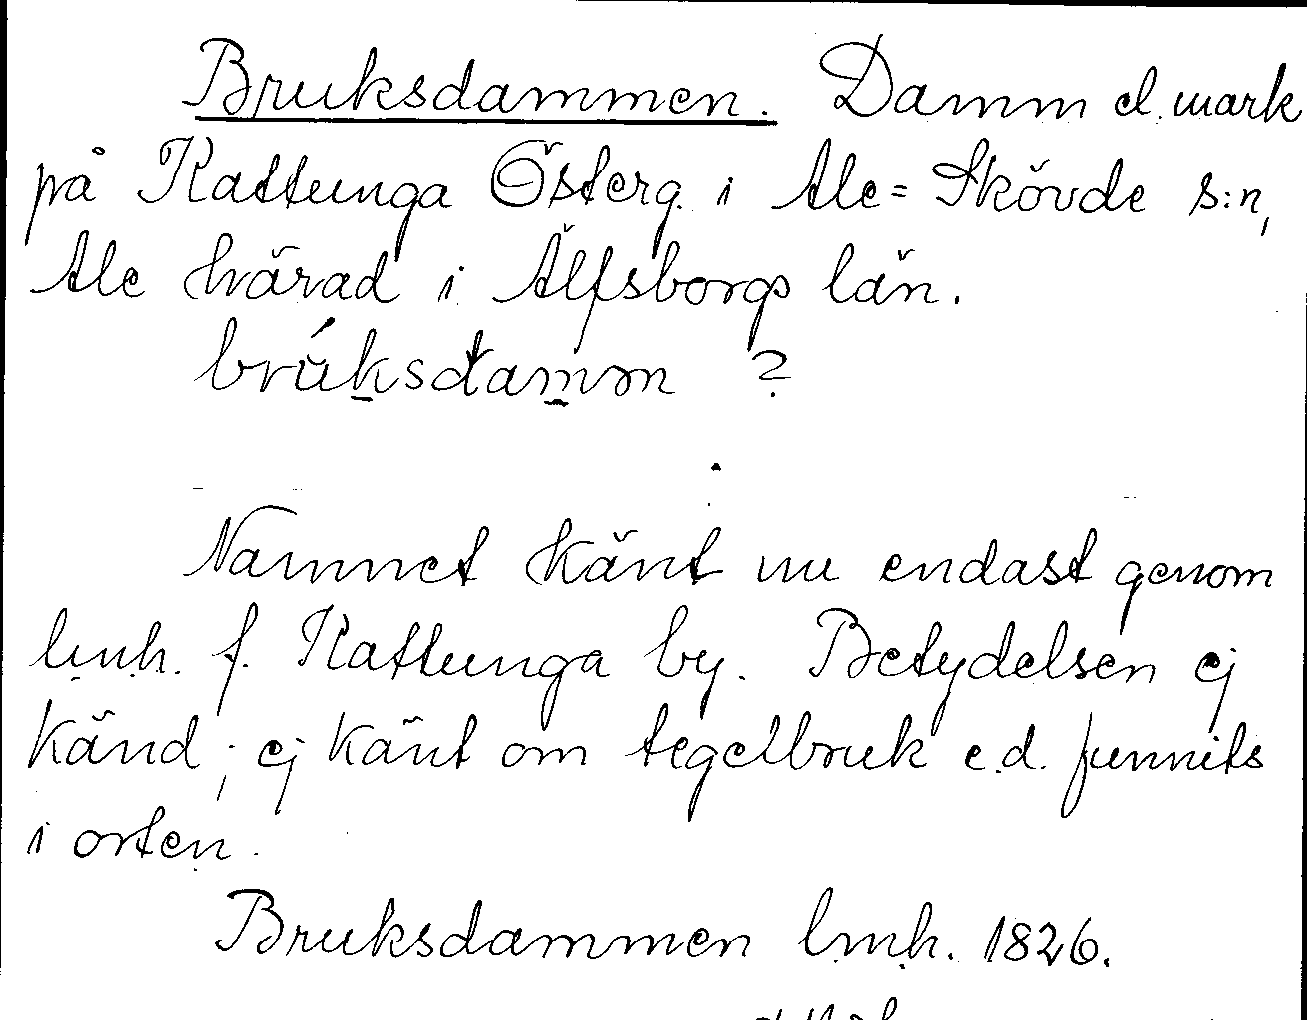 Bruksdammen. Damm el. mark
på Kattunga Österg. i Ale=Skövde s:n,
Ale härad i Älfsborgs län.
brúksdamm ?
Namnet känt nu endast genom
lmh. f. Kattunga by. Betydelsen ej
känd; ej känt om tegelbruk e.d. funnits
i orten.
Bruksdammen lmh. 1826.